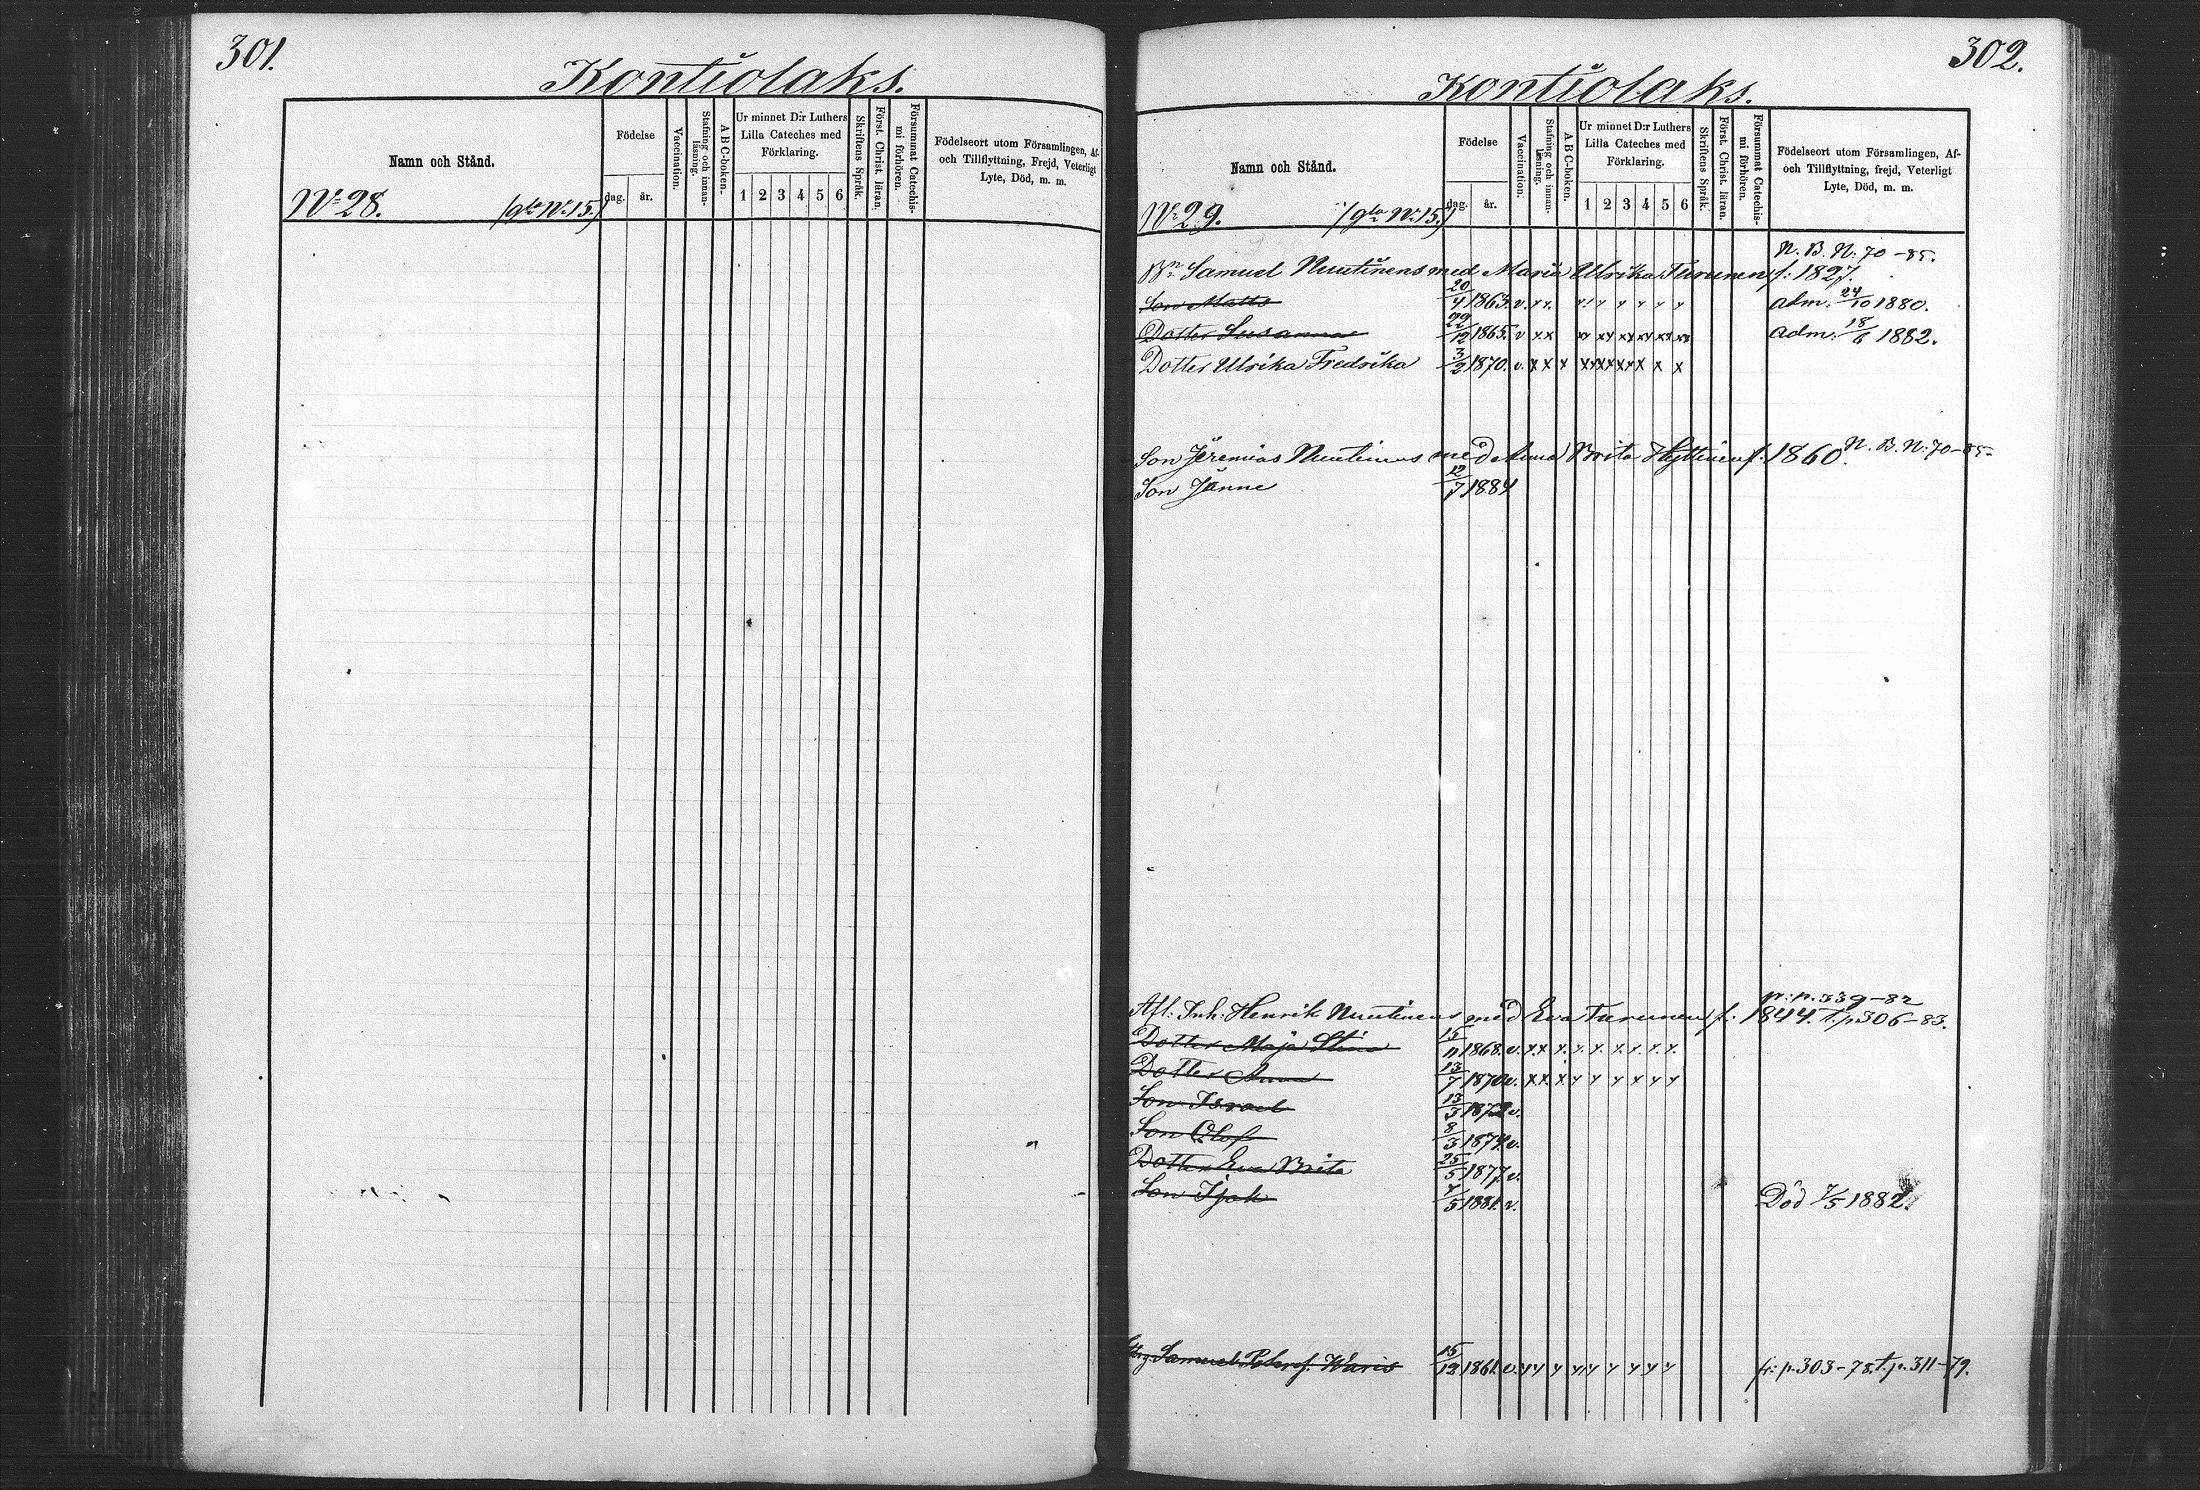 301.
Kontiolaks.
Namn och Stånd.
Födelse
dag. år.
Vaccination.
Stafning och innanläsning.
ABC-boken.
Ur minnet D:r Luthers Lilla Cateches med Förklaring.
1 2 3 4 5 6
Skriftens Språk.
Först. Christ. läran.
Försummat Catechismi förhören.
Födelseort utom Församlingen, Af-
och Tillflyttning, Frejd, Veterligt
Lyte, Död, m. m.
No 28. (gla No 15.)
302.
Kontiolaks.
Namn och Stånd.
Födelse
dag. år.
Vaccination.
Stafning och innanläsning.
ABC-boken.
Ur minnet D:r Luthers Lilla Cateches med Förklaring.
1 2 3 4 5 6
Skriftens Språk.
Först. Christ. läran.
Försummat Catechismi förhören.
Födelseort utom Församlingen, Af-
och Tillflyttning, frejd, Veterligt
Lyte, Död, m. m.
No 29. (gla No 15.)
N. B. N: 70-85.
Bn Samuel Nuutinens med Maria Ulrika Turunen f: 1827.
Son Matts 20/4 1863. v. x x. x x x x x x adm. 24/10 1880.
Dotter Susanna 22/12 1865. v x x xx xx xx xx xx xx adm. 18/6 1882.
Dotter Ulrika Fredrika 3/2 1870. v. x x x xx xx xx x x x
Son Jeremias Nuutinens med Anna Brita Hyttinen f: 1860. N. B. N: 70-85.
Son Janne 12/7 1884
fr: p. 339-82
Afl. Inh: Henrik Nuutinens med Eva Turunen f: 1844. t. p. 306-83.
Dotter Maja Stina 15/11 1868. v. x x x. x. x. x. x. x. x.
Dotter Anna 13/7 1870 v. x x x x x x x x x
Son Israel 13/3 1872 v.
Son Olof 8/3 1874. v.
Dotter Eva Brita 25/5 1877. v.
Son Isak 4/5 1881. v. Död 7/5 1882.
Samuel Petersf. Waris 15/12 1861. v. x x x xx x x x x x fr: p. 303-78. t. p. 311-79.